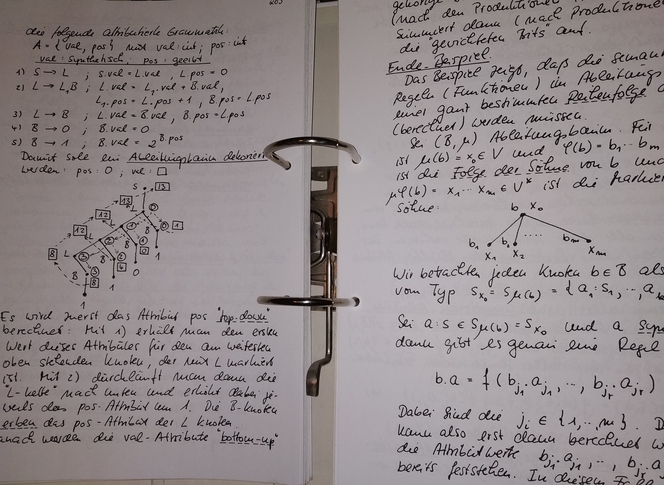 203
die folgende attributierte Grammatik:
A = {val, pos} mit val: int; pos: int
val: synthetisch, pos: geerbt
1) S → L ; S.val = L.val, L.pos = 0
2) L → L₁B ; L.val = L₁.val + B.val,
L₁.pos = L.pos + 1, B.pos = L.pos
3) L → B ; L.val = B.val, B.pos = L.pos
4) B → 0 ; B.val = 0
5) B → 1 ; B.val = 2^B.pos
Damit soll ein Ableitungsbaum dekoriert
werden: pos: ○, val: □
S 13
13 L 0
12 L 1 B 0 1
12 L 2 B 1 0 1
8 L 3 B 2 4 0
8 B 3 1
1
Es wird zuerst das Attribut pos "top-down"
berechnet: Mit 1) erhält man den ersten
Wert dieses Attributes für den am weitesten
oben stehenden Knoten, der mit L markiert
ist. Mit 2) durchläuft man dann die
"L-Kette" nach unten und erhöht dabei je-
weils das pos-Attribut um 1. Die B-Knoten
erben das pos-Attribut der L Knoten
danach werden die val-Attribute "bottom-up"
(nach den Produktionen
summiert dann (nach Produktionen
die "gewichteten Bits" auf.
Ende-Beispiel.
Das Beispiel zeigt, daß die seman
Regeln (Funktionen) im Ableitungs
einer ganz bestimmten Reihenfolge
(berechnet) werden müssen.
Sei (B, μ) Ableitungsbaum. Für
ist μ(b) = x₀ ∈ V und φ(b) = b₁ ... bm
ist die Folge der Söhne von b und
μφ(b) = x₁ ... xm ∈ V* ist die Markier
Söhne:
b x₀
b₁ b₂ ..... bm
x₁ x₂ xm
Wir betrachten jeden Knoten b ∈ B als
vom Typ Sx₀ = Sμ(b) = {a₁: S₁, ..., a
Sei a: s ∈ Sμ(b) = Sx₀ und a syn
dann gibt es genau eine Regel
b.a = f(bj₁.aj₁, ..., bjr.ajr)
Dabei sind die ji ∈ {1, ..., m}. D
kann also erst dann berechnet w
die Attributwerte bj₁.aj₁, ..., bjr.a
bereits feststehen. In diesem Fall